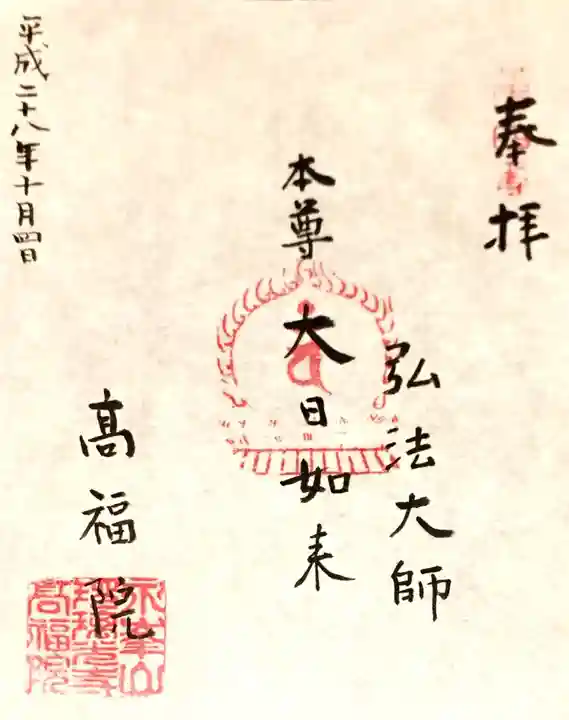 奉拝
弘法大師
本尊
大日如来
髙福院
平成二十八年十月四日
髙福院